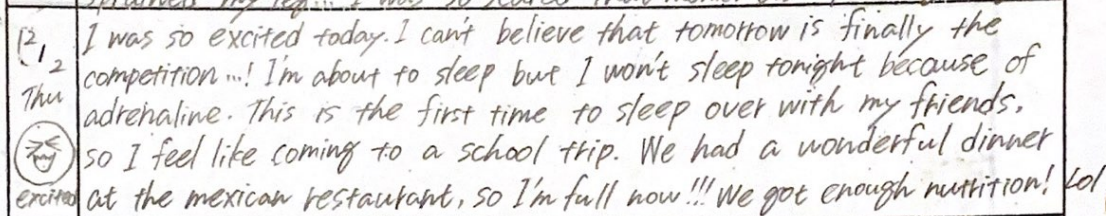 12/2 I was so excited today. I can't believe that tomorrow is finally the
competition...! I'm about to sleep but I won't sleep tonight because of
Thu adrenaline. This is the first time to sleep over with my friends,
so I feel like coming to a school trip. We had a wonderful dinner
excited at the mexican restaurant, so I'm full now!!! We got enough nutrition! Lol